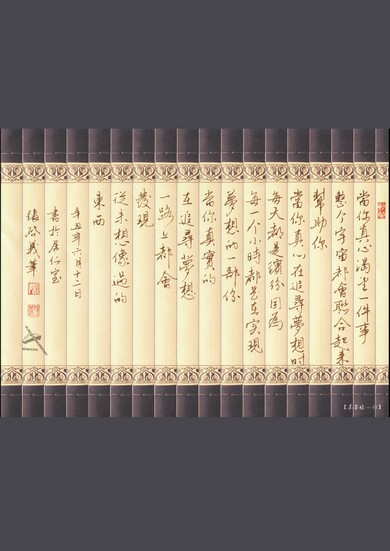 當你真心渴望一件事
整个宇宙都會聯合起来
幫助你
當你真心在追尋夢想时
每天都是繽纷因為
每一个小時都是在实現
夢想的一部份
當你真實的
在追尋夢想
一路上都會
發現
從未想像過的
東西
辛丑年六月十二日
書於居仁室
張啟義筆